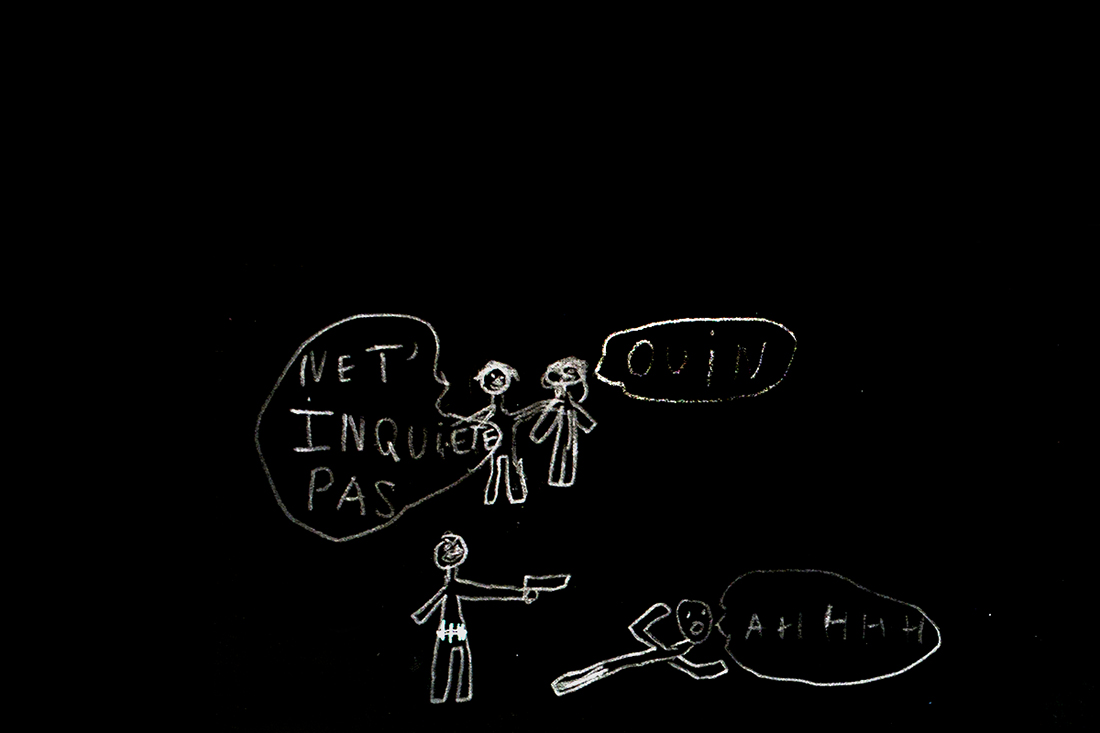 NE T'
INQUIÈTE
PAS
OUIN
AHHHH